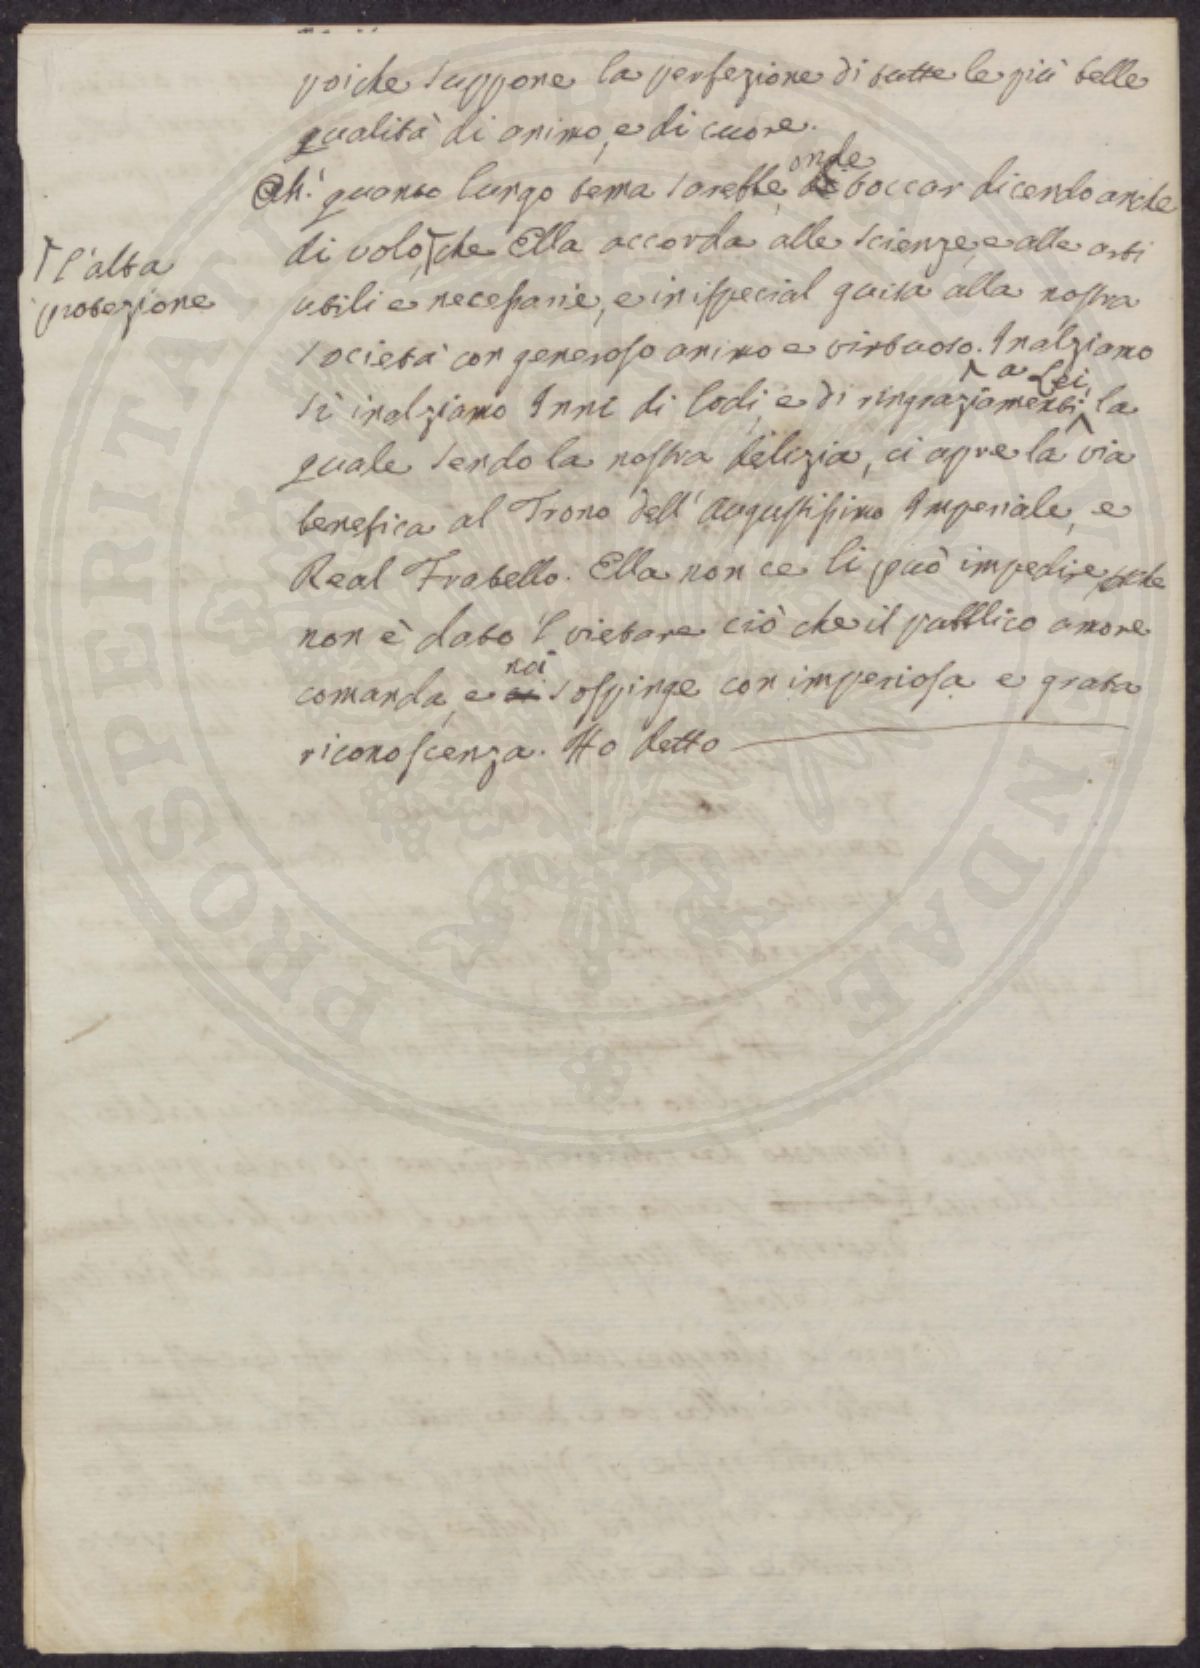 poiche suppone la perfezione di tutte le più belle
qualità di animo, e di cuore.
Ah! quanto lungo tema sarebbe, onde toccar dicendo anche
di volo, che Ella accorda alle scienze, e alle arti
l'alta
protezione
utili e necessarie, e in ispecial guisa alla nostra
società con generoso animo e virtuoso. Inalziamo
sì inalziamo Inni di lodi, e di ringraziamenti a Lei, la
quale sendo la nostra delizia, ci apre la via
benefica al Trono dell'Augustissimo Imperiale, e
Real Fratello. Ella non ce li può impedire, che
non è dato 'l vietare ciò che il pubblico amore
comanda, e noi sospinge con imperiosa e grata
riconoscenza. Ho detto
PROSPERITATI PUBLICAE AUGENDAE